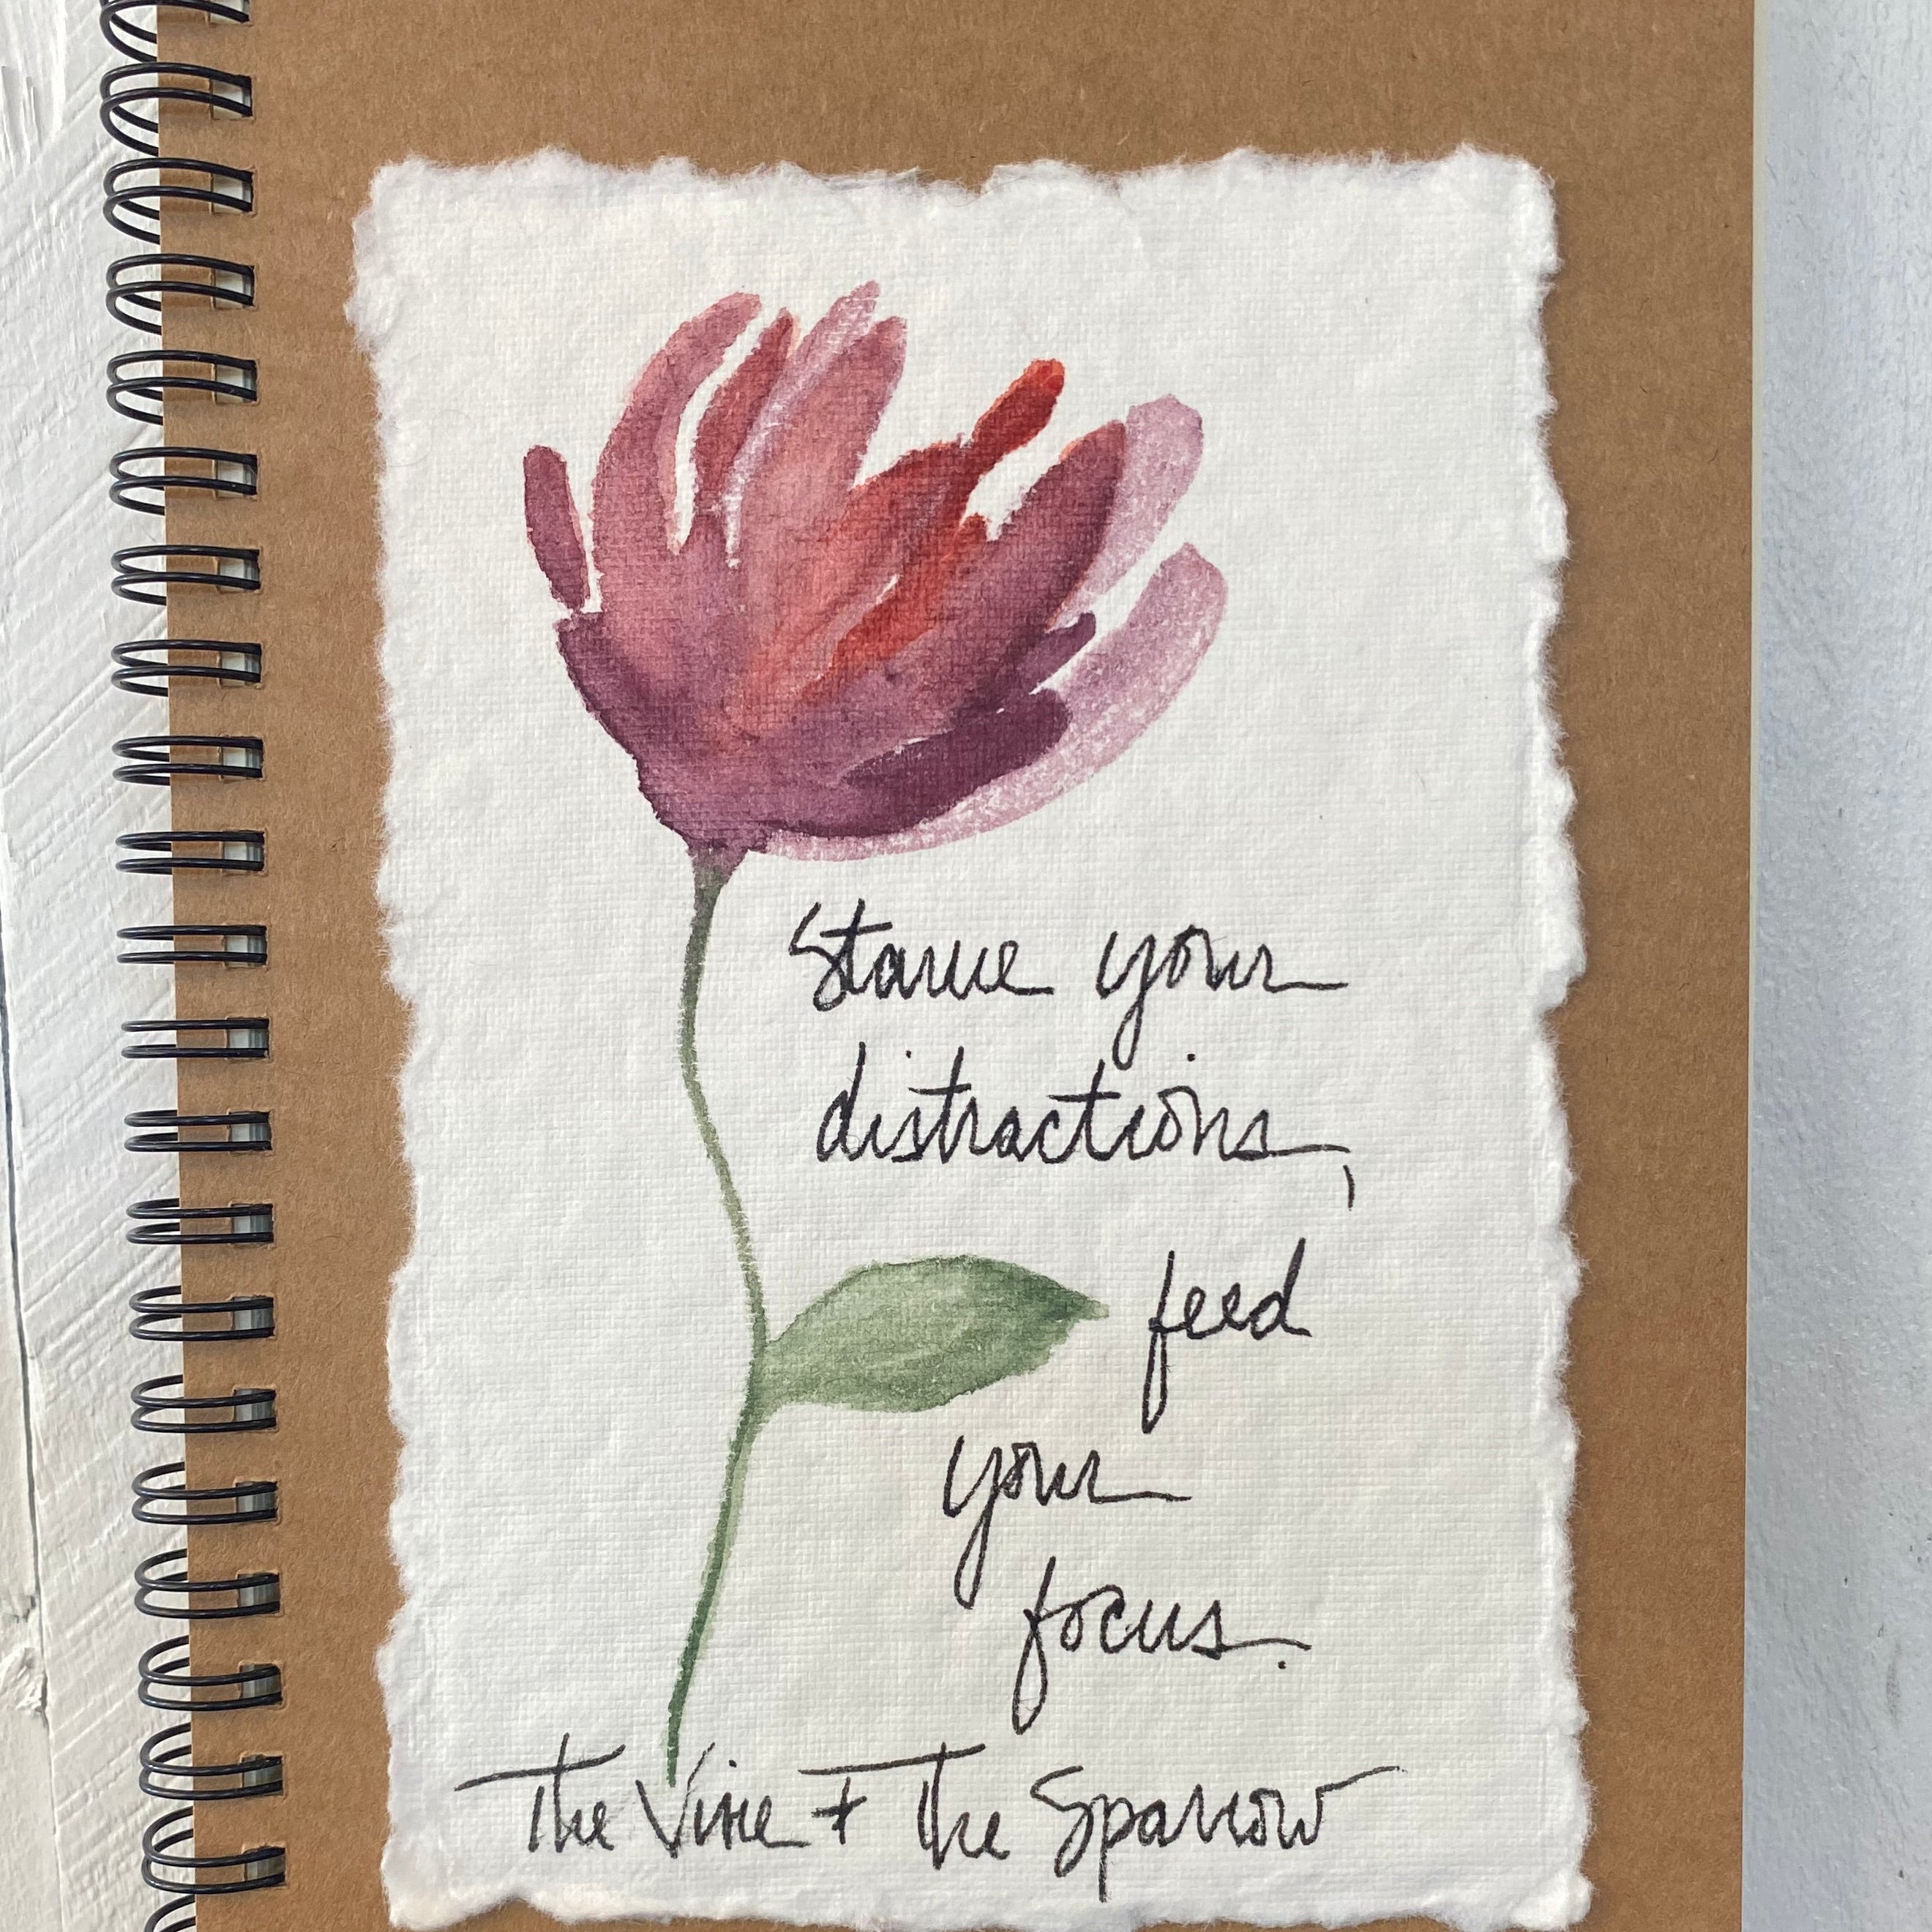 Starve your
distractions,
feed
your
focus.
The Vine + The Sparrow